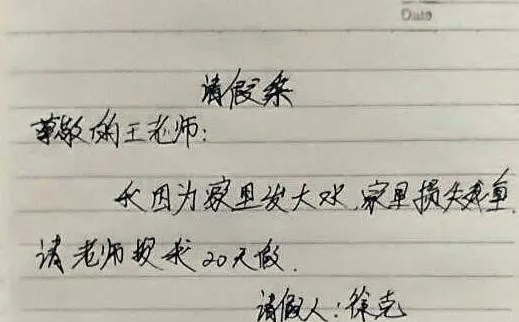 Date
请假条
尊敬的王老师：
我因为家里发大水，家里损失残重，
请老师授我20天假．
请假人：徐克